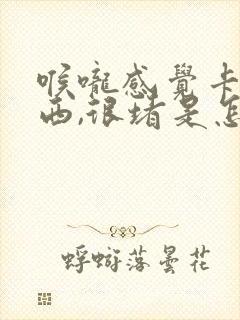 喉嚨感覺卡
西,很堵是怎
蜉蝣落曇花